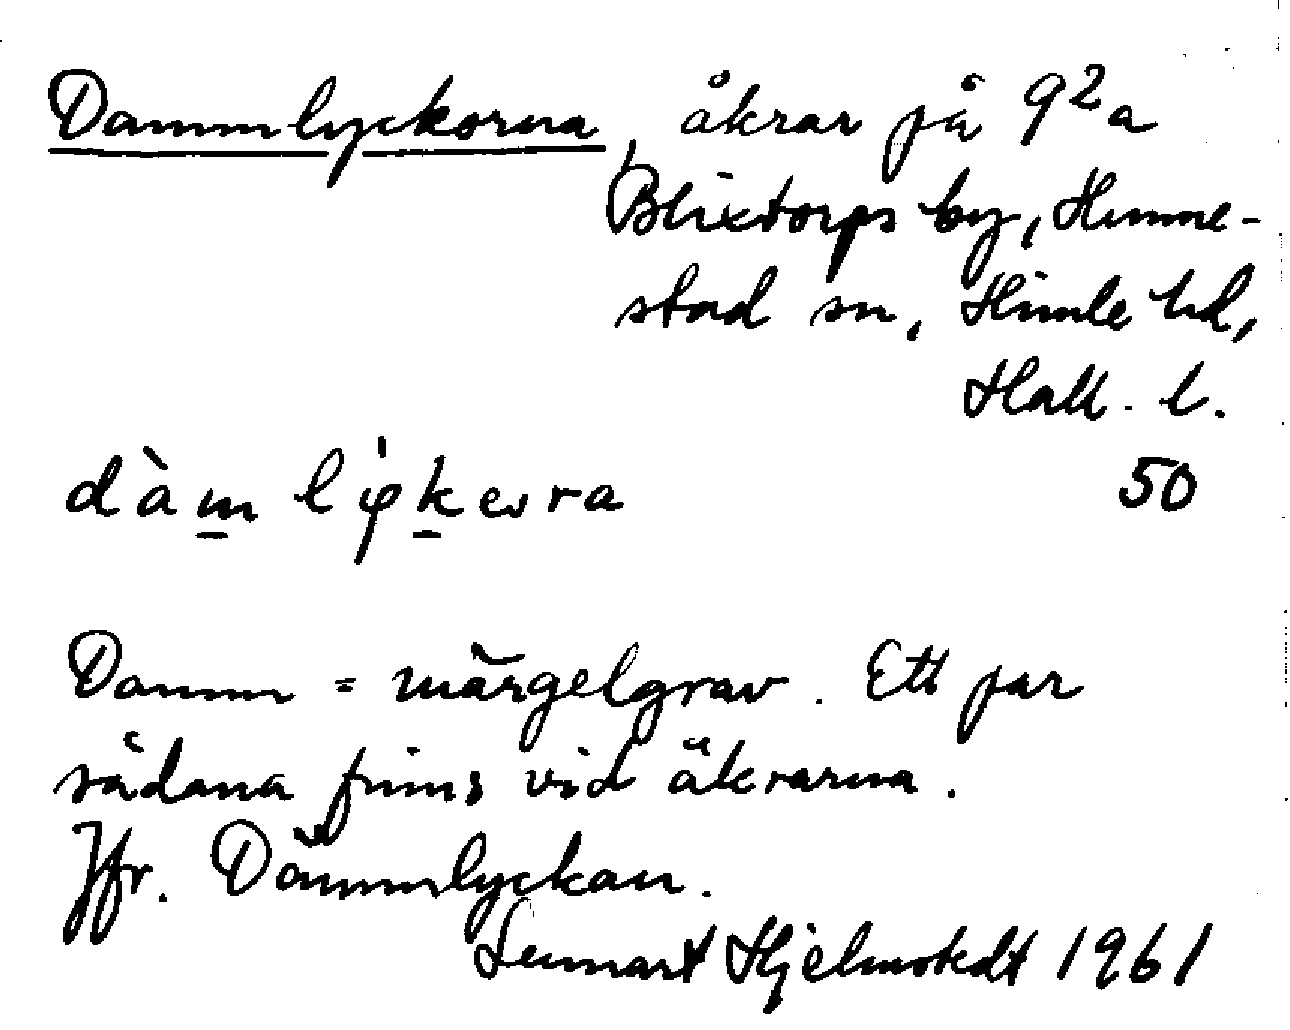 Dammlyckorna, åkrar på 9²a
Blixtorps by, Himle-
stad sn, Himle hd,
Hall. l.
dàm lykera 50
Damm = märgelgrav. Ett par
sådana finns vid åkrarna.
Jfr. Dämmlyckan.
Lennart Hjelmstedt 1961